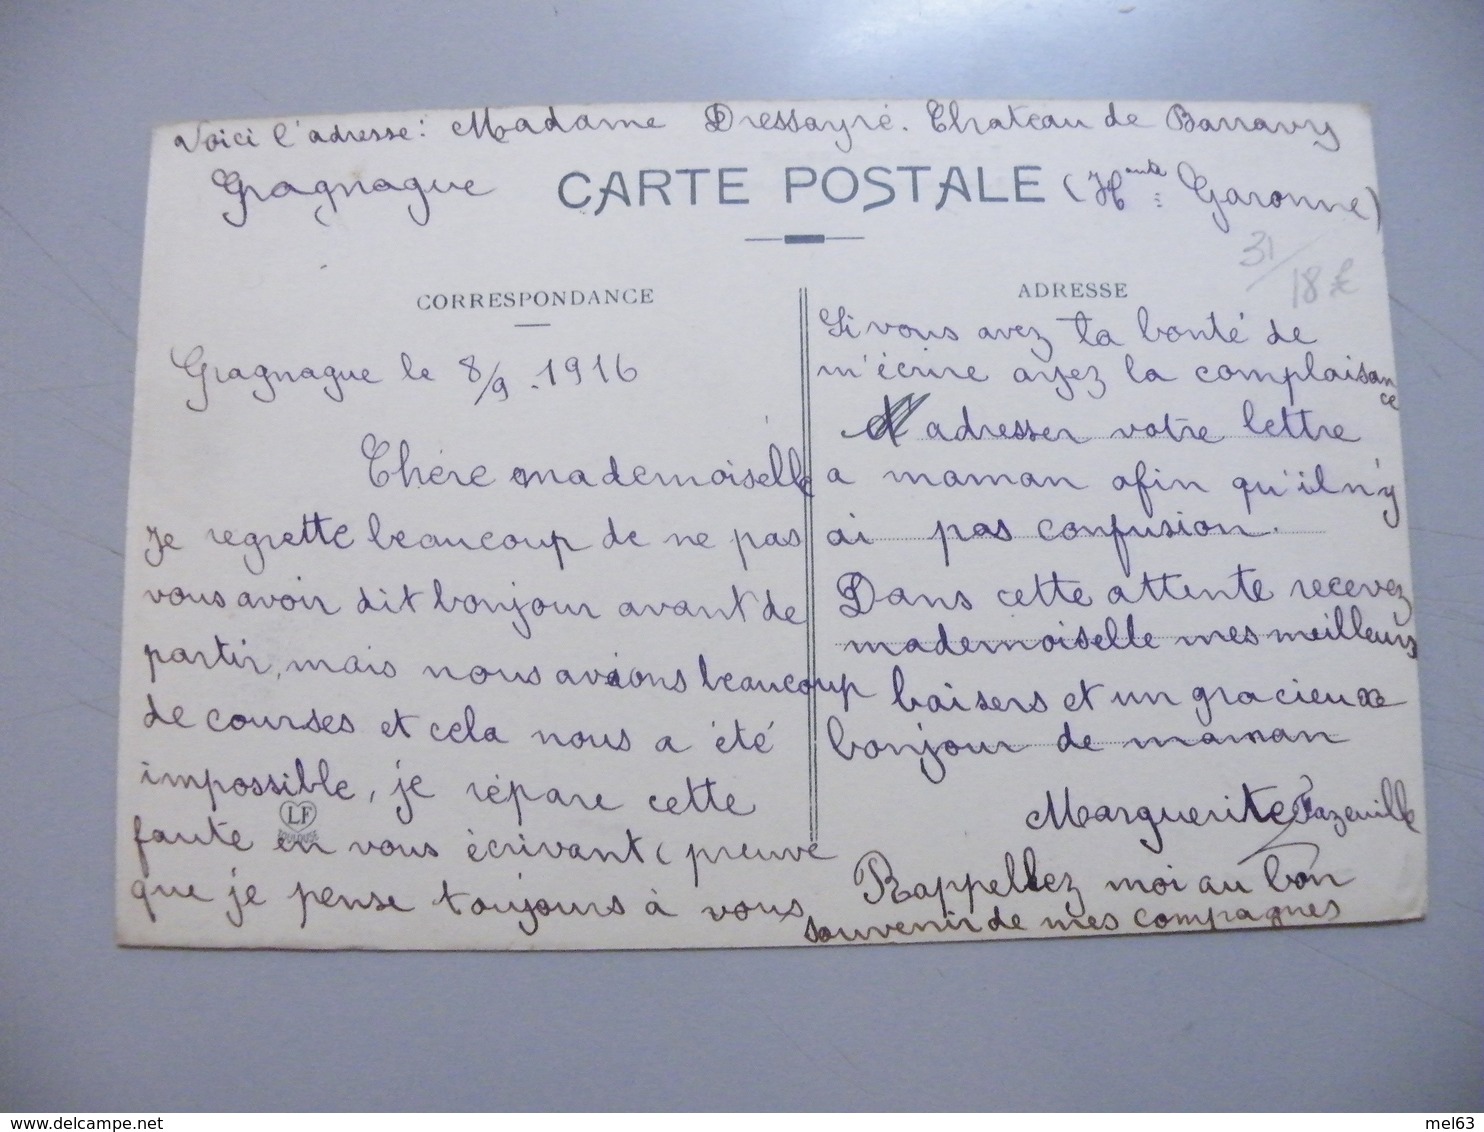 Voici l'adresse: Madame Dressayré. Chateau de Barravy
Gragnague
CARTE POSTALE
(Haute: Garonne)
31/18€
CORRESPONDANCE
Gragnague le 8/9.1916
Chère mademoiselle
Je regrette beaucoup de ne pas
vous avoir dit bonjour avant de
partir, mais nous avions beaucoup
de courses et cela nous a été
impossible, je répare cette
LF
Toulouse
faute en vous écrivant (preuve
que je pense toujours à vous
ADRESSE
Si vous avez la bonté de
m'écrire ayez la complaisance
d'adresser votre lettre
a maman afin qu'il n'y
ai pas confusion.
Dans cette attente recevez
mademoiselle mes meilleurs
baisers et un gracieuxe
bonjour de maman
Marguerite Cazeuille
Rappellez moi au bon
souvenir de mes compagnes
mel63